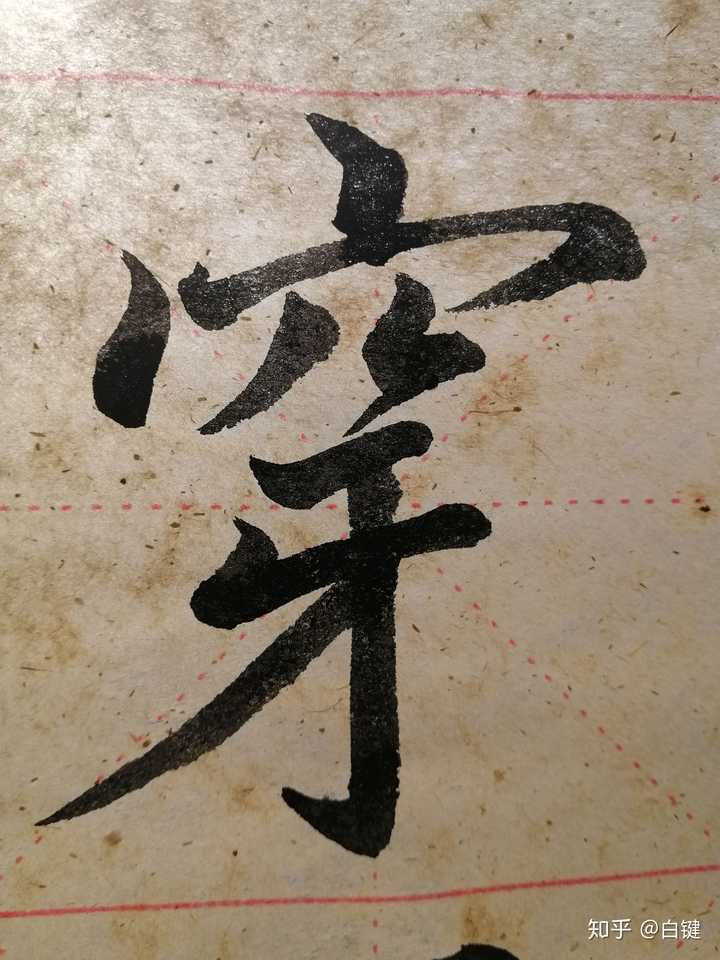 穿
知乎 @白键